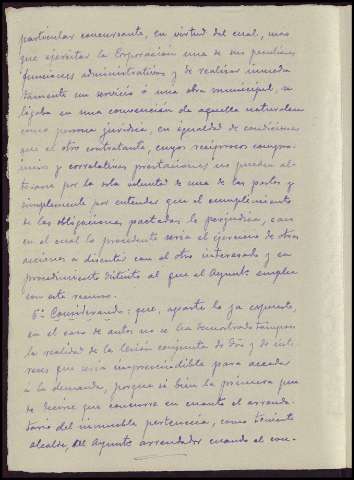 particular concursante, en virtud del cual, mas
que ejercitar la Corporación una de sus peculiares
funciones administrativas y de realizar inmedia
tamente un servicio ó una obra municipal, se
ligaba en una convención de aquella naturaleza
como persona jurídica, en igualdad de condiciones
que el otro contratante, cuyos recíprocos compro
misos y correlativas prestaciones no pueden al-
terarse por la sola voluntad de una de las partes y
simplemente por entender que el cumplimiento
de las obligaciones pactadas la perjudica, caso
en el cual lo procedente seria el ejercicio de otras
acciones a discutir con el otro interesado y en
procedimiento distinto al que el Ayuntº emplea
con este recurso.
6º Considerando: que, aparte lo ya expuesto,
en el caso de autos no se ha demostrado tampoco
la realidad de la lesión conjunta de dros y de inte
reses que seria imprescindible para acceder
á la demanda, porque si bien la primera pue
de decirse que concurre en cuanto el arrenda-
tario del inmueble pertenecia, como teniente
alcalde, del Ayuntº arrendador cuando el con-